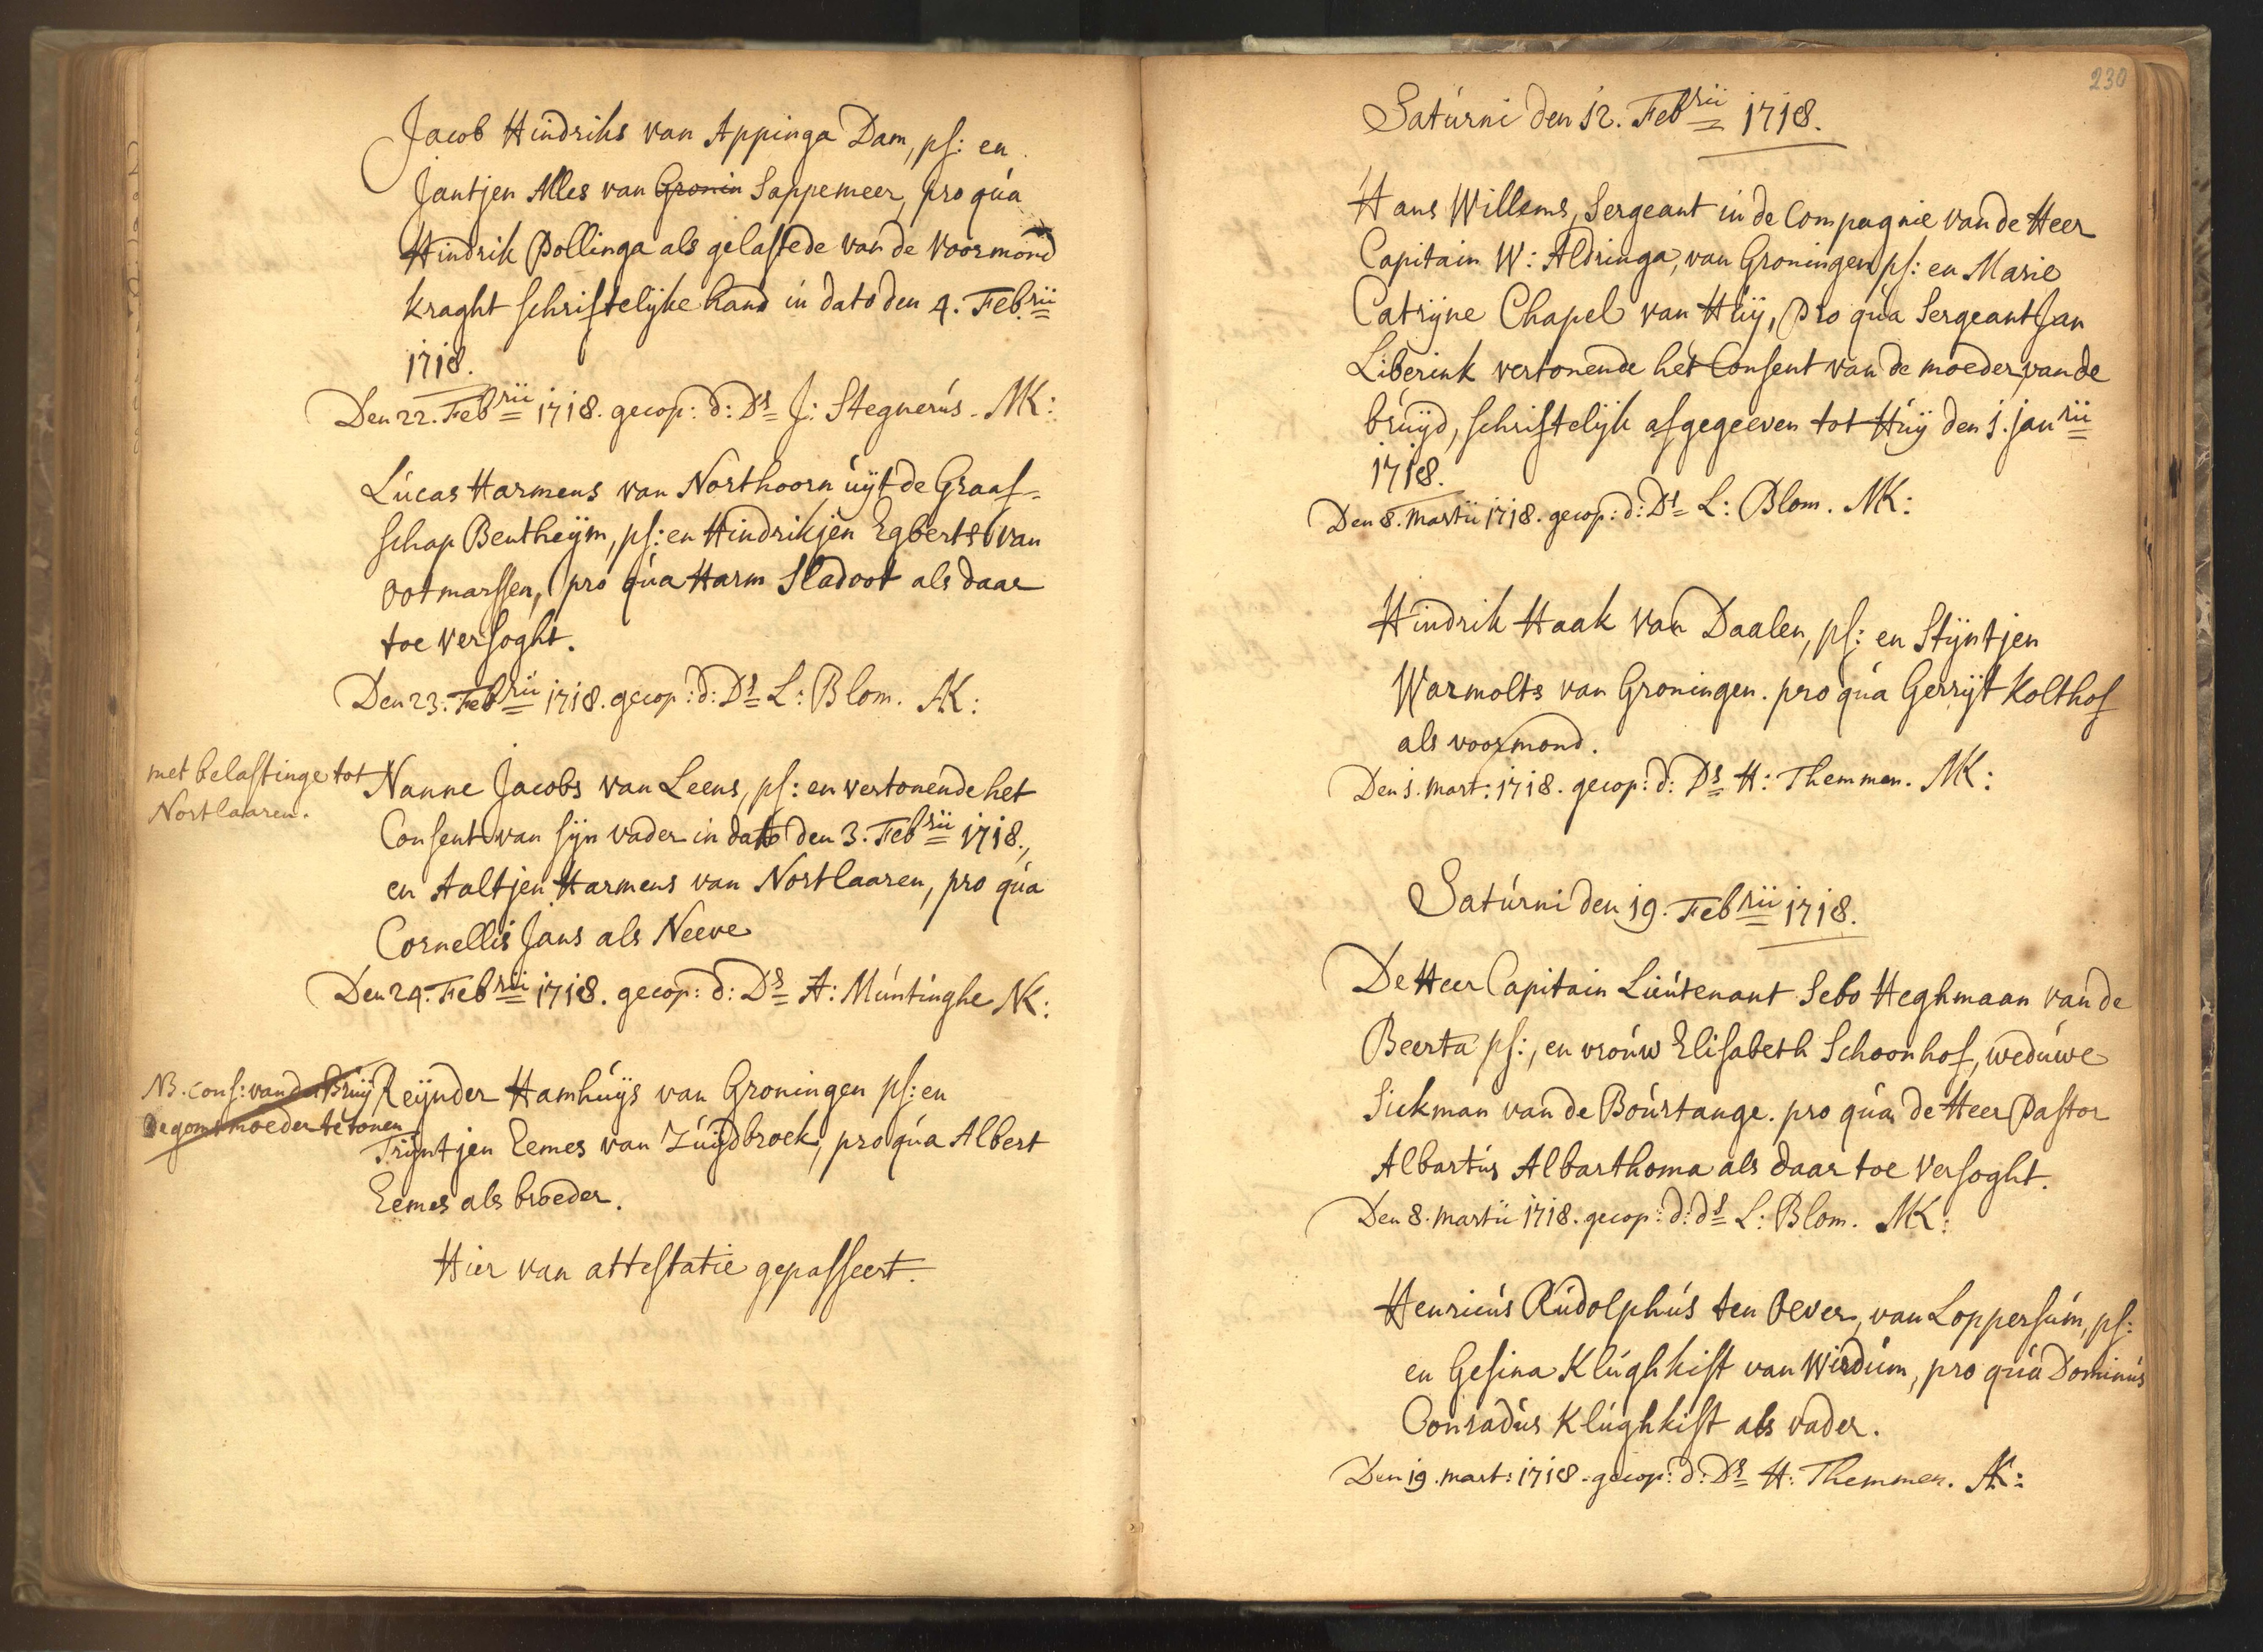 Jacob Hindriks van Appinga Dam, ps: en
Jantjen Alles van Gronin Sappemeer, pro qua
Hindrik Pollinga als gelastede van de Voormond
kraght schriftelijke hand in dato den 4. Feb.rii
1718.
Den 22. Febrii 1718. gecop: d: Ds J: Stegnerus. NK:
Lucas Harmens van Northoorn uijt de Graaf-
schap Bentheijm, ps: en Hindrikjen Egberts van
Ootmarssen, pro qua Harm Sladoot als daar
toe versoght.
Den 23. Febrii 1718. gecop: d: Ds L: Blom. NK:
met belastinge tot
Nortlaaren.
Nanne Jacobs van Leens, ps: en vertonende het
Consent van sijn vader in dato den 3. Febrii 1718.,
en Aaltjen Harmens van Nortlaaren, pro qua
Cornellis Jans als Neeve
Den 24. Febrii 1718. gecop: d: Ds A: Muntinghe NK:
NB. cons: van de Bruij
degoms moeder te tonen
Reijnder Hamhuijs van Groningen ps: en
Trijntjen Eemes van Zuijdbroek, pro qua Albert
Eemes als broeder.
Hier van attestatie gepasseert.
230
Saturni den 12. Febrii 1718.
Hans Willems, Sergeant in de Compagnie van de Heer
Capitain W: Aldringa, van Groningen ps: en Marie
Catrijne Chapel van Huij, Pro qua Sergeant Jan
Liberink vertonende het Consent van de moeder van de
bruijd, schriftelijk afgegeeven tot Huij den 1. janrii
1718.
Den 8. Martii 1718. gecop: d: Ds L: Blom. NK:
Hindrik Haak van Daalen, ps: en Stijntjen
Warmolts van Groningen. pro qua Gerrijt Kolthof
als voormond.
Den 1. Mart: 1718. gecop: d: Ds H: Themmen. NK:
Saturni den 19. Febrii 1718.
De Heer Capitain Lieutenant Sebo Heghmaan van de
Beerta ps:, en vrouw Elisabeth Schoonhof, weduwe
Siekman van de Bourtange. pro qua de Heer Pastor
Albartus Albarthoma als daar toe versoght.
Den 8. Martii 1718. gecop: d: ds L: Blom. NK:
Henricus Rudolphus ten Oever, van Loppersum, ps:
en Gesina Klughkist van Wirdum, pro qua Dominus
Conradus Klughkist als vader.
Den 19. mart: 1718. gecop: d: Ds H: Themmen. NK: